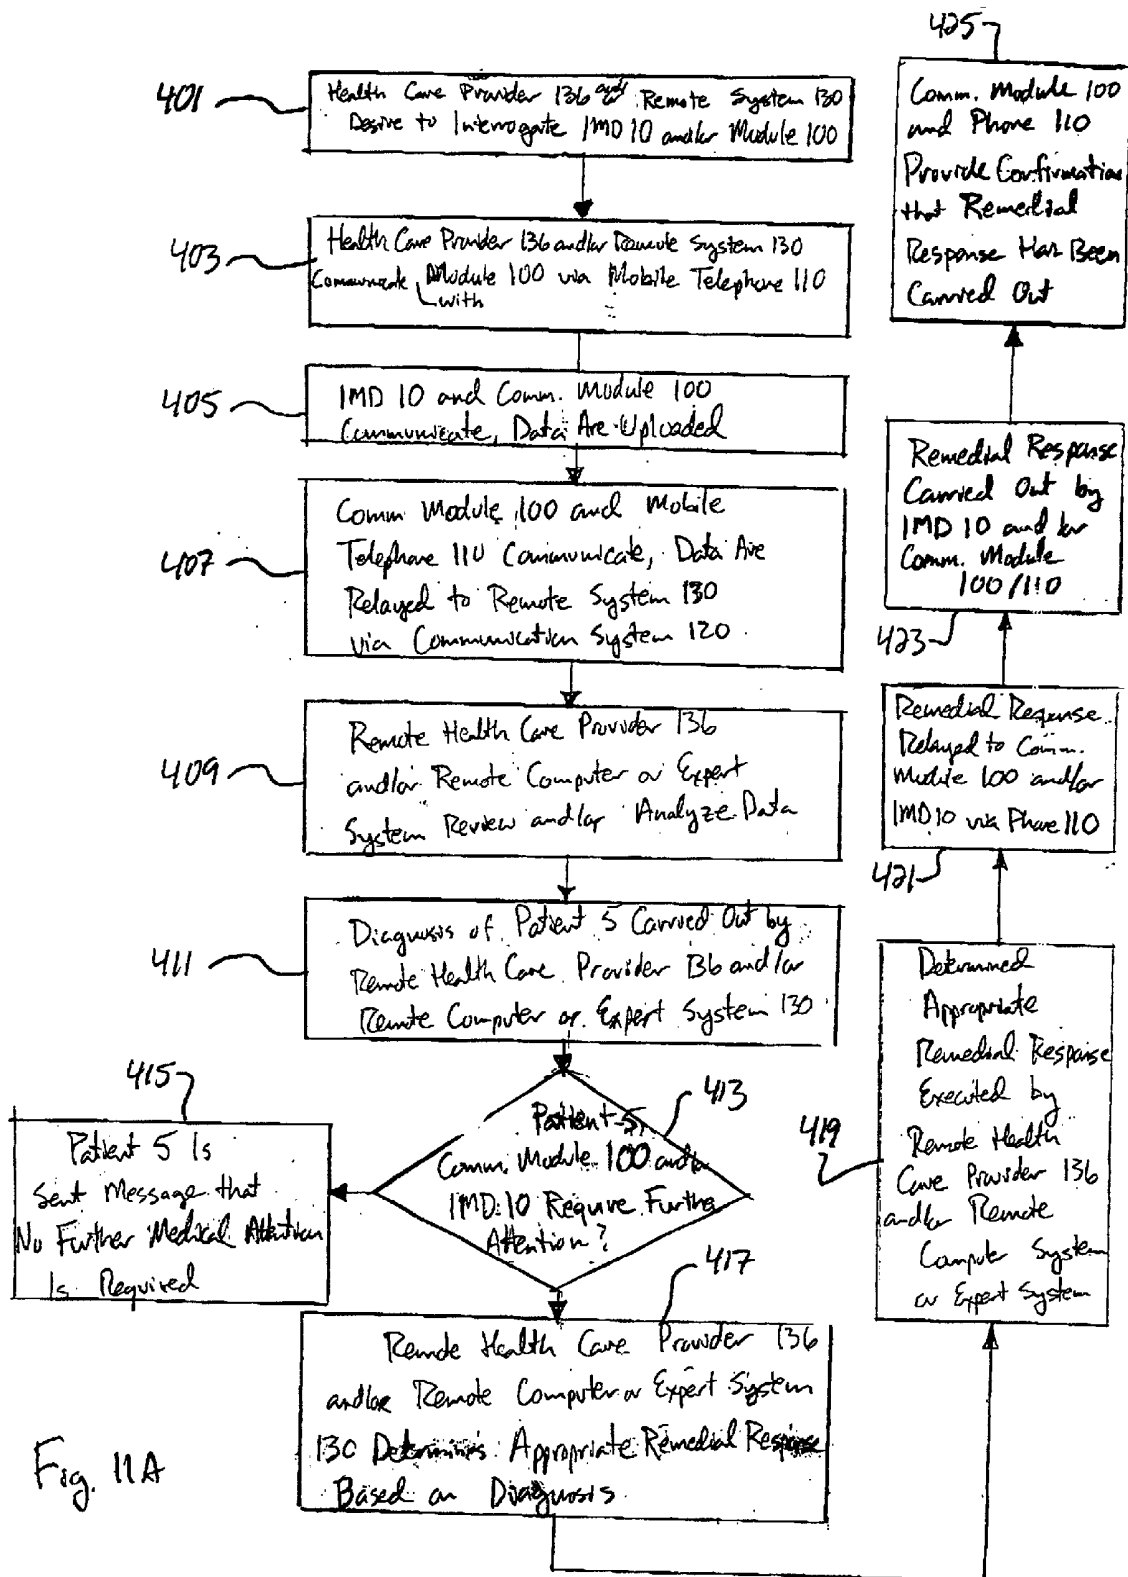 401
Health Care Provider 136 and/or Remote System 130
Desire to Interrogate IMD 10 and/or Module 100
403
Health Care Provider 136 and/or Remote System 130
Communicate with Module 100 via Mobile Telephone 110
405
IMD 10 and Comm. Module 100
Communicate, Data Are Uploaded
407
Comm Module 100 and Mobile
Telephone 110 Communicate, Data Are
Relayed to Remote System 130
via Communication System 120
409
Remote Health Care Provider 136
and/or Remote Computer or Expert
System Review and/or Analyze Data
411
Diagnosis of Patient 5 Carried Out by
Remote Health Care Provider 136 and/or
Remote Computer or Expert System 130
413
Patient 5,
Comm. Module 100 and/or
IMD 10 Require Further
Attention?
415
Patient 5 Is
Sent Message that
No Further Medical Attention
Is Required
417
Remote Health Care Provider 136
and/or Remote Computer or Expert System
130 Determines Appropriate Remedial Response
Based on Diagnosis
419
Determined
Appropriate
Remedial Response
Executed by
Remote Health
Care Provider 136
and/or Remote
Computer System
or Expert System
421
Remedial Response
Relayed to Comm.
Module 100 and/or
IMD 10 via Phone 110
423
Remedial Response
Carried Out by
IMD 10 and/or
Comm. Module
100/110
425
Comm. Module 100
and Phone 110
Provide Confirmation
that Remedial
Response Has Been
Carried Out
Fig. 11A